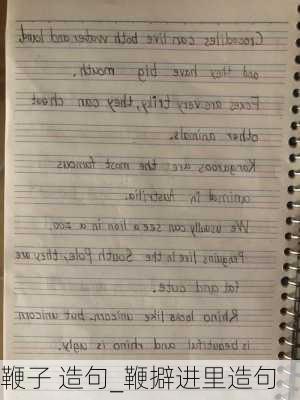 Crocodiles can live both water and land,
and they have big mouth.
Foxes are very triky, they can cheat
other animals.
Kangaroos are the most famous
animal in Austrilia.
We usually can see a lion in a zoo.
Penguins live in the South Pole, they are
fat and cute.
Rhino looks like unicorn, but unicorn
is beautiful and rhino is ugly.
鞭子 造句_鞭擗进里造句